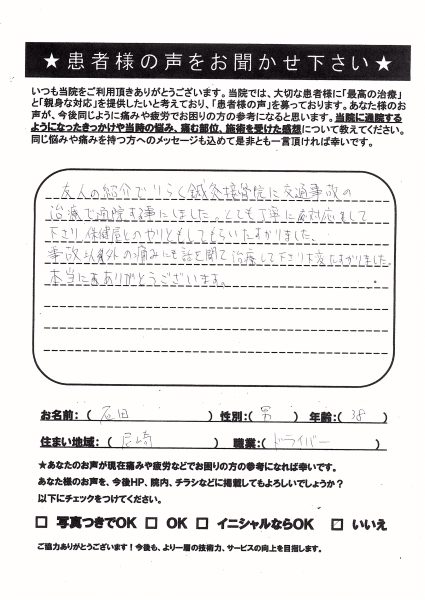 ★患者様の声をお聞かせ下さい★
いつも当院をご利用頂きありがとうございます。当院では、大切な患者様に「最高の治療」
と「親身な対応」を提供したいと考えており、「患者様の声」を募っております。あなた様のお
声が、今後同じように痛みや疲労でお困りの方の参考になると思います。当院に通院する
ようになったきっかけや当時の悩み、痛む部位、施術を受けた感想について教えてください。
同じ悩みや痛みを持つ方へのメッセージも込めて是非とも一言頂ければ幸いです。
友人の紹介でりらく鍼灸接骨院に交通事故の
治療で通院する事にしました。とても丁寧に対応して
下さり保健屋とのやりとりもしてもらいたすかりました。
事故以外の痛みにも話を聞て治療して下さり大変たすかりました。
本当にありがとうございます。
お名前：（ 石田 ） 性別：（ 男 ） 年齢：（ 38 ）
住まい地域：（ 尼崎 ） 職業：（ ドライバー ）
★あなたのお声が現在痛みや疲労などでお困りの方の参考になれば幸いです。
あなた様のお声を、今後HP、院内、チラシなどに掲載してもよろしいでしょうか？
以下にチェックをつけてください。
□ 写真つきでOK □ OK □ イニシャルならOK □ いいえ
ご協力ありがとうございます！今後も、より一層の技術力、サービスの向上を目指します。